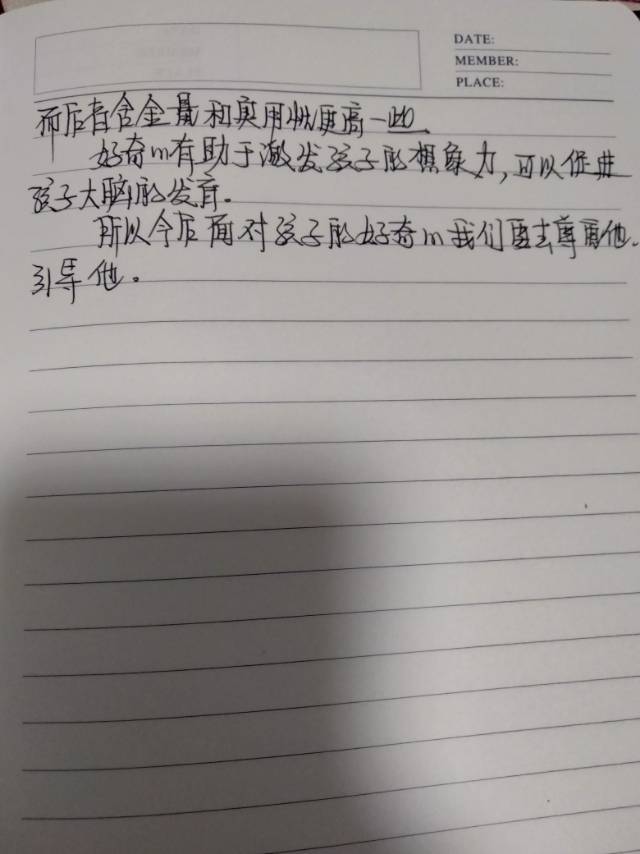 DATE:
MEMBER:
PLACE:
而后者含金量和实用性更高一些.
好奇心有助于激发孩子的想象力,可以促进
孩子大脑的发育.
所以今后面对孩子的好奇心我们要去尊重他.
引导他.